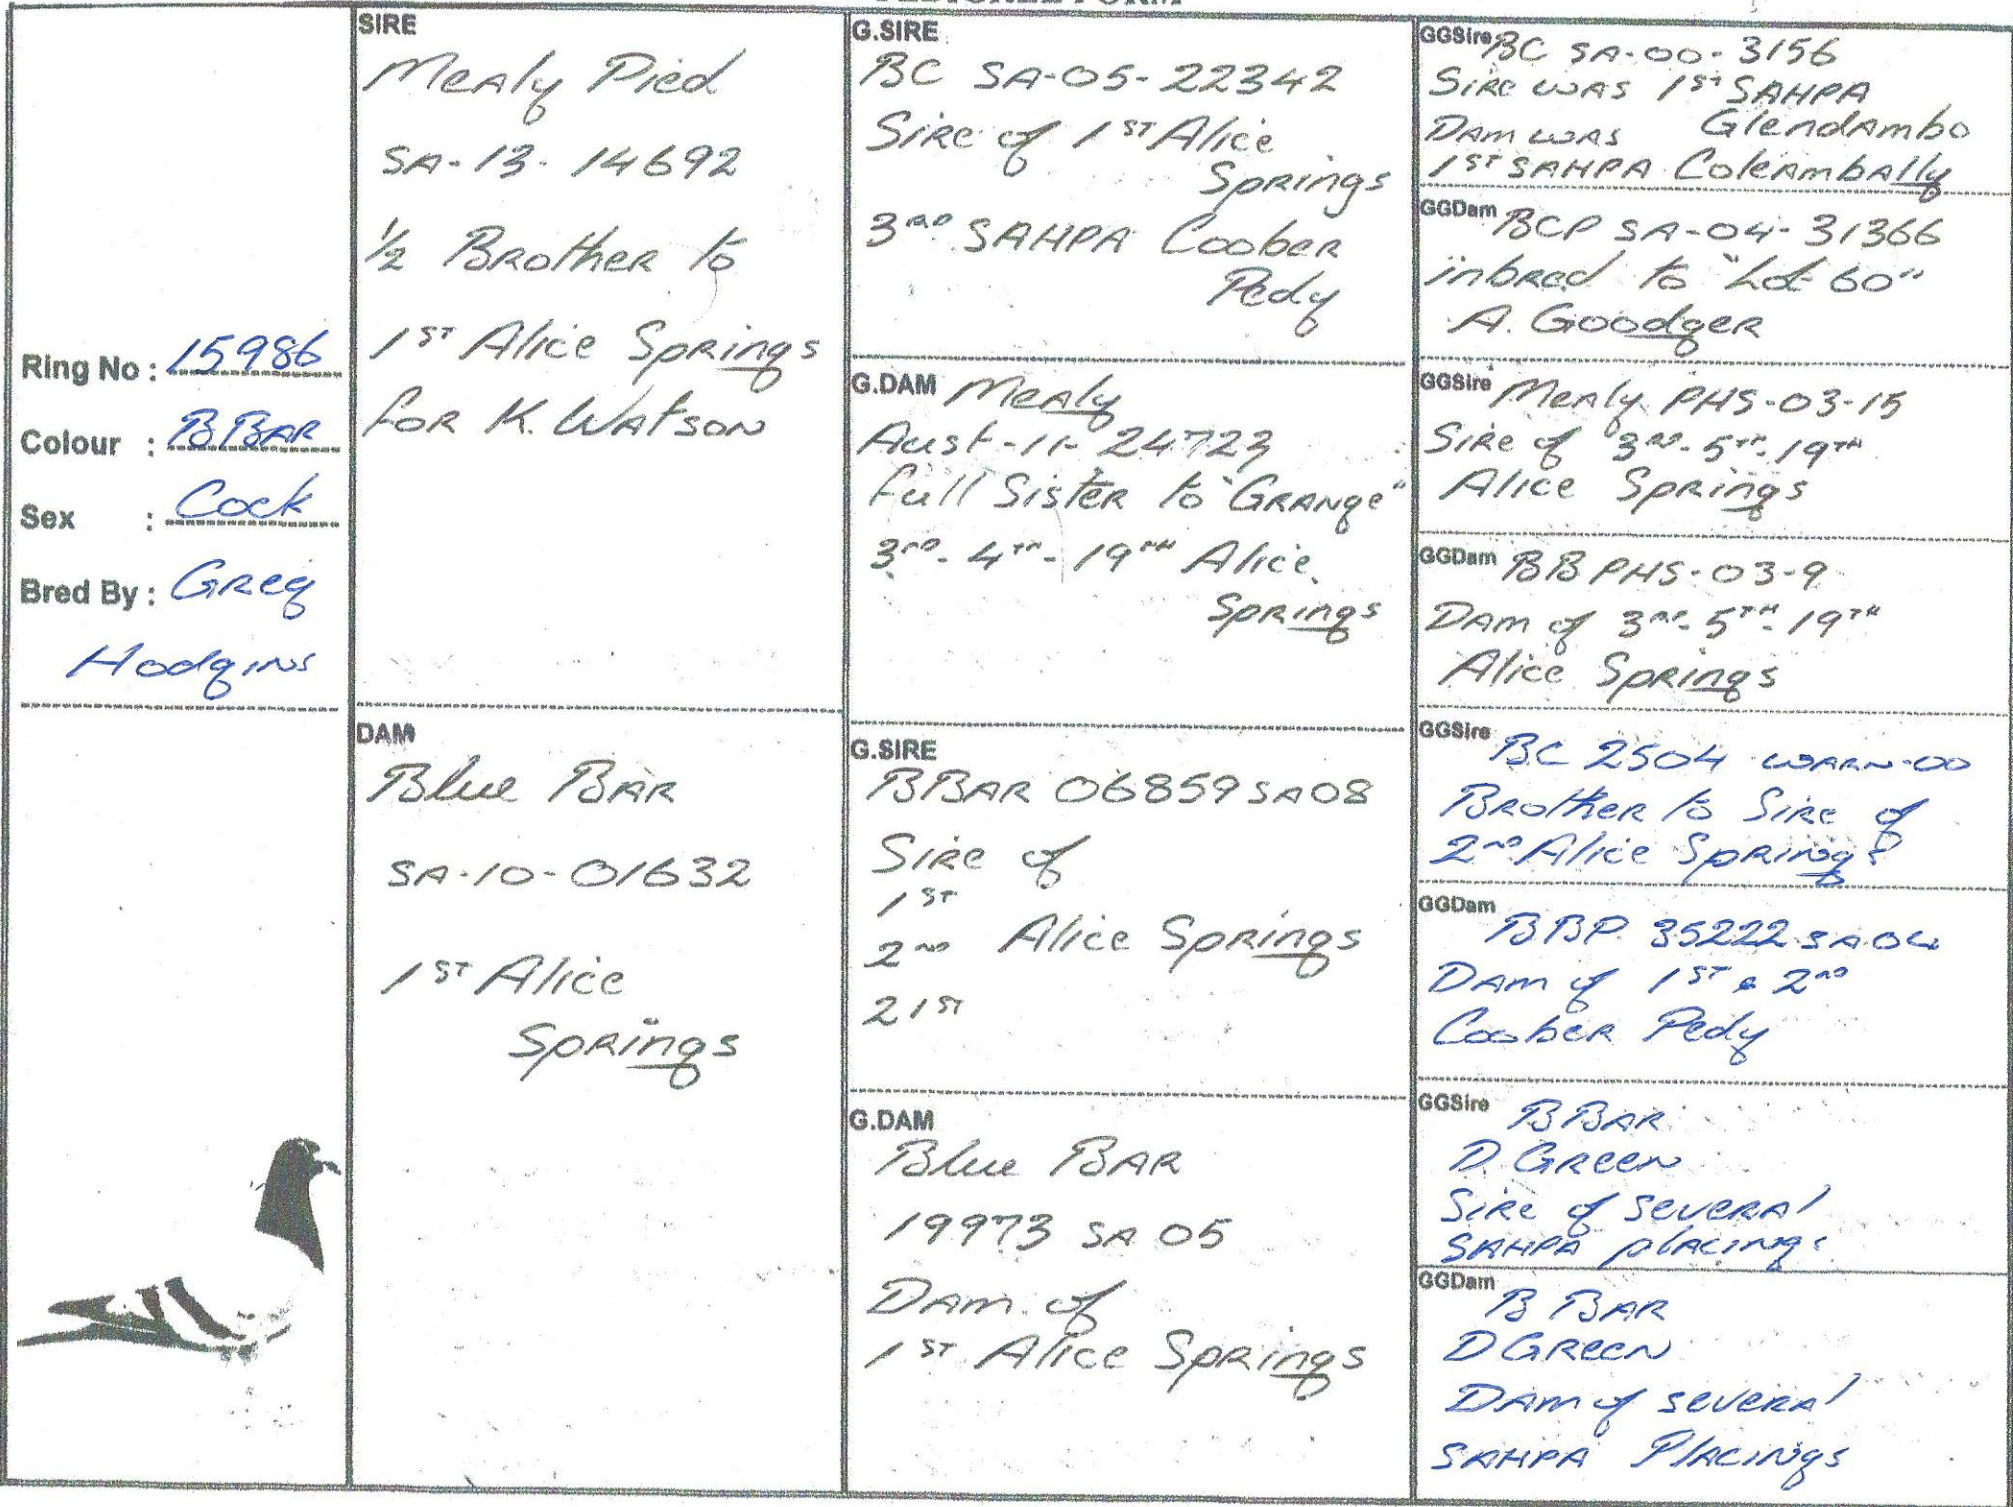 PEDIGREE FORM
Ring No : 15986
Colour : BBAR
Sex : Cock
Bred By : Greg
Hodgins
SIRE
Mealy Pied
SA-13-14692
1/2 Brother to
1ST Alice Springs
for K. Watson
DAM
Blue BAR
SA-10-01632
1ST Alice
Springs
G.SIRE
BC SA-05-22342
Sire of 1ST Alice
Springs
3RD SAHPA Coober
Pedy
G.DAM Mealy
Aust-11-24723
full Sister to "Grange"
3RD-4TH-19TH Alice
Springs
G.SIRE
BBAR 06859 SA08
Sire of
1ST
2ND Alice Springs
21ST
G.DAM
Blue BAR
19973 SA 05
Dam of
1ST Alice Springs
GGSire BC SA-00-3156
Sire was 1ST SAHPA
Glendambo
Dam was
1ST SAHPA Coleambally
GGDam BCP SA-04-31366
inbred to "Lot 60"
A. Goodger
GGSire Mealy PHS-03-15
Sire of 3RD-5TH-19TH
Alice Springs
GGDam BB PHS-03-9
Dam of 3RD-5TH-19TH
Alice Springs
GGSire
BC 2504 WARN-00
Brother to Sire of
2ND Alice Springs
GGDam
BBP 35222 SA04
Dam of 1ST & 2ND
Coober Pedy
GGSire BBAR
D. Green
Sire of several
SAHPA placings
GGDam
B BAR
D Green
Dam of several
SAHPA Placings